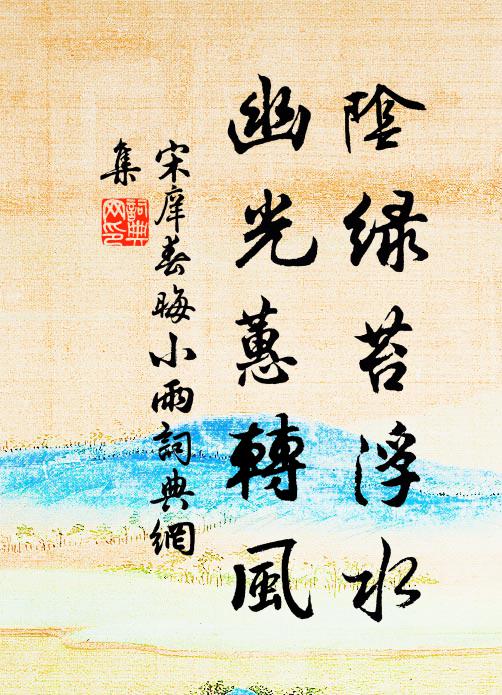 陰綠苔浮水
幽光蕙轉風
宋庠春晦小雨詞典網
集
詞典网印